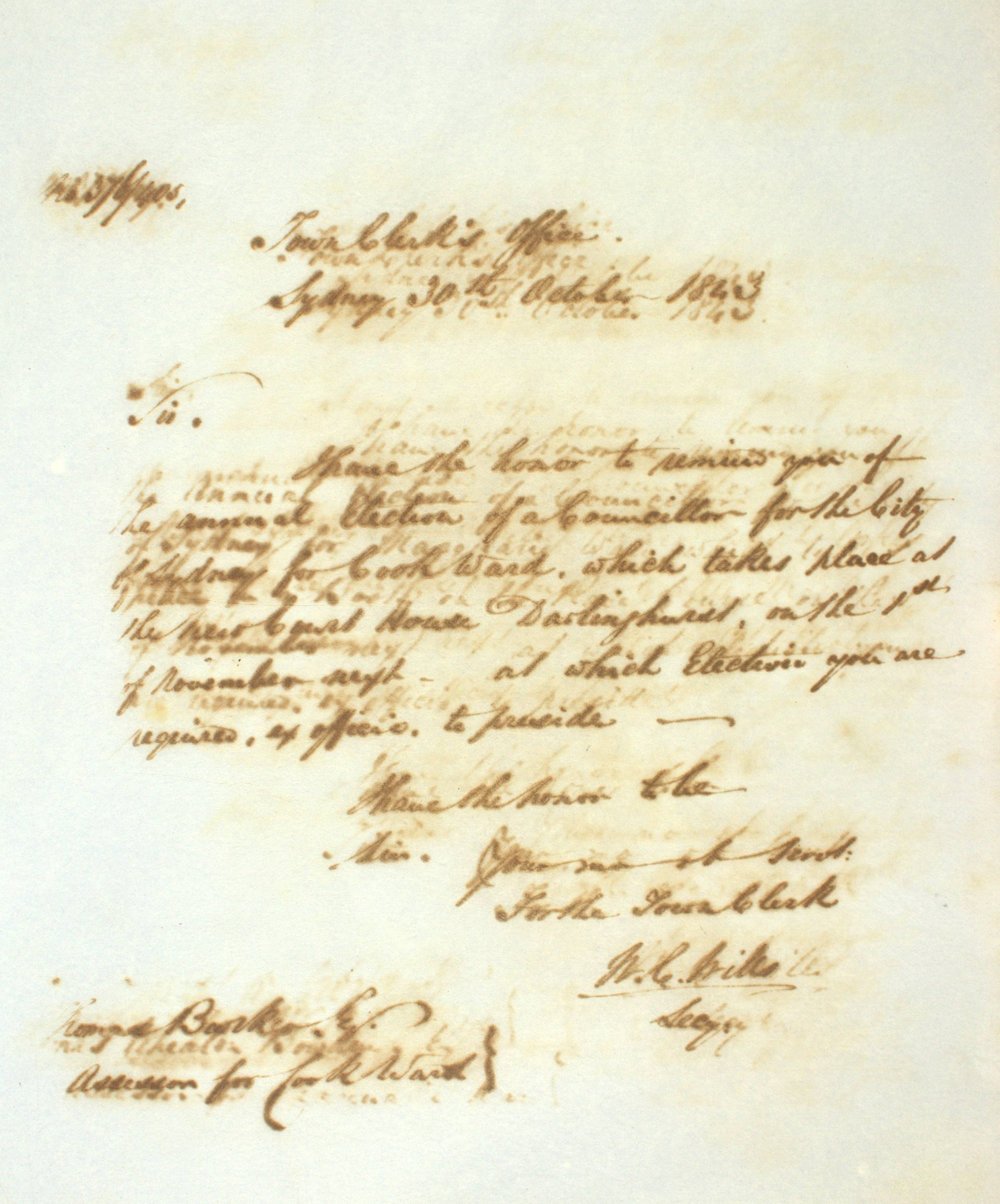 Town Clerk's Office.
Sydney 30th October 1843
Sir.
I have the honor to remind you of
the annual Election of a Councillor for the City
of Sydney for Cook Ward, which takes place at
the new Court House Darlinghurst, on the 1st
of November next - at which Election you are
required, ex officio, to preside —
I have the honor to be
Sir.
Your servt:
For the Town Clerk
W.C. Wills
Secy
Thomas Barker Esq.
Assessor for Cook Ward